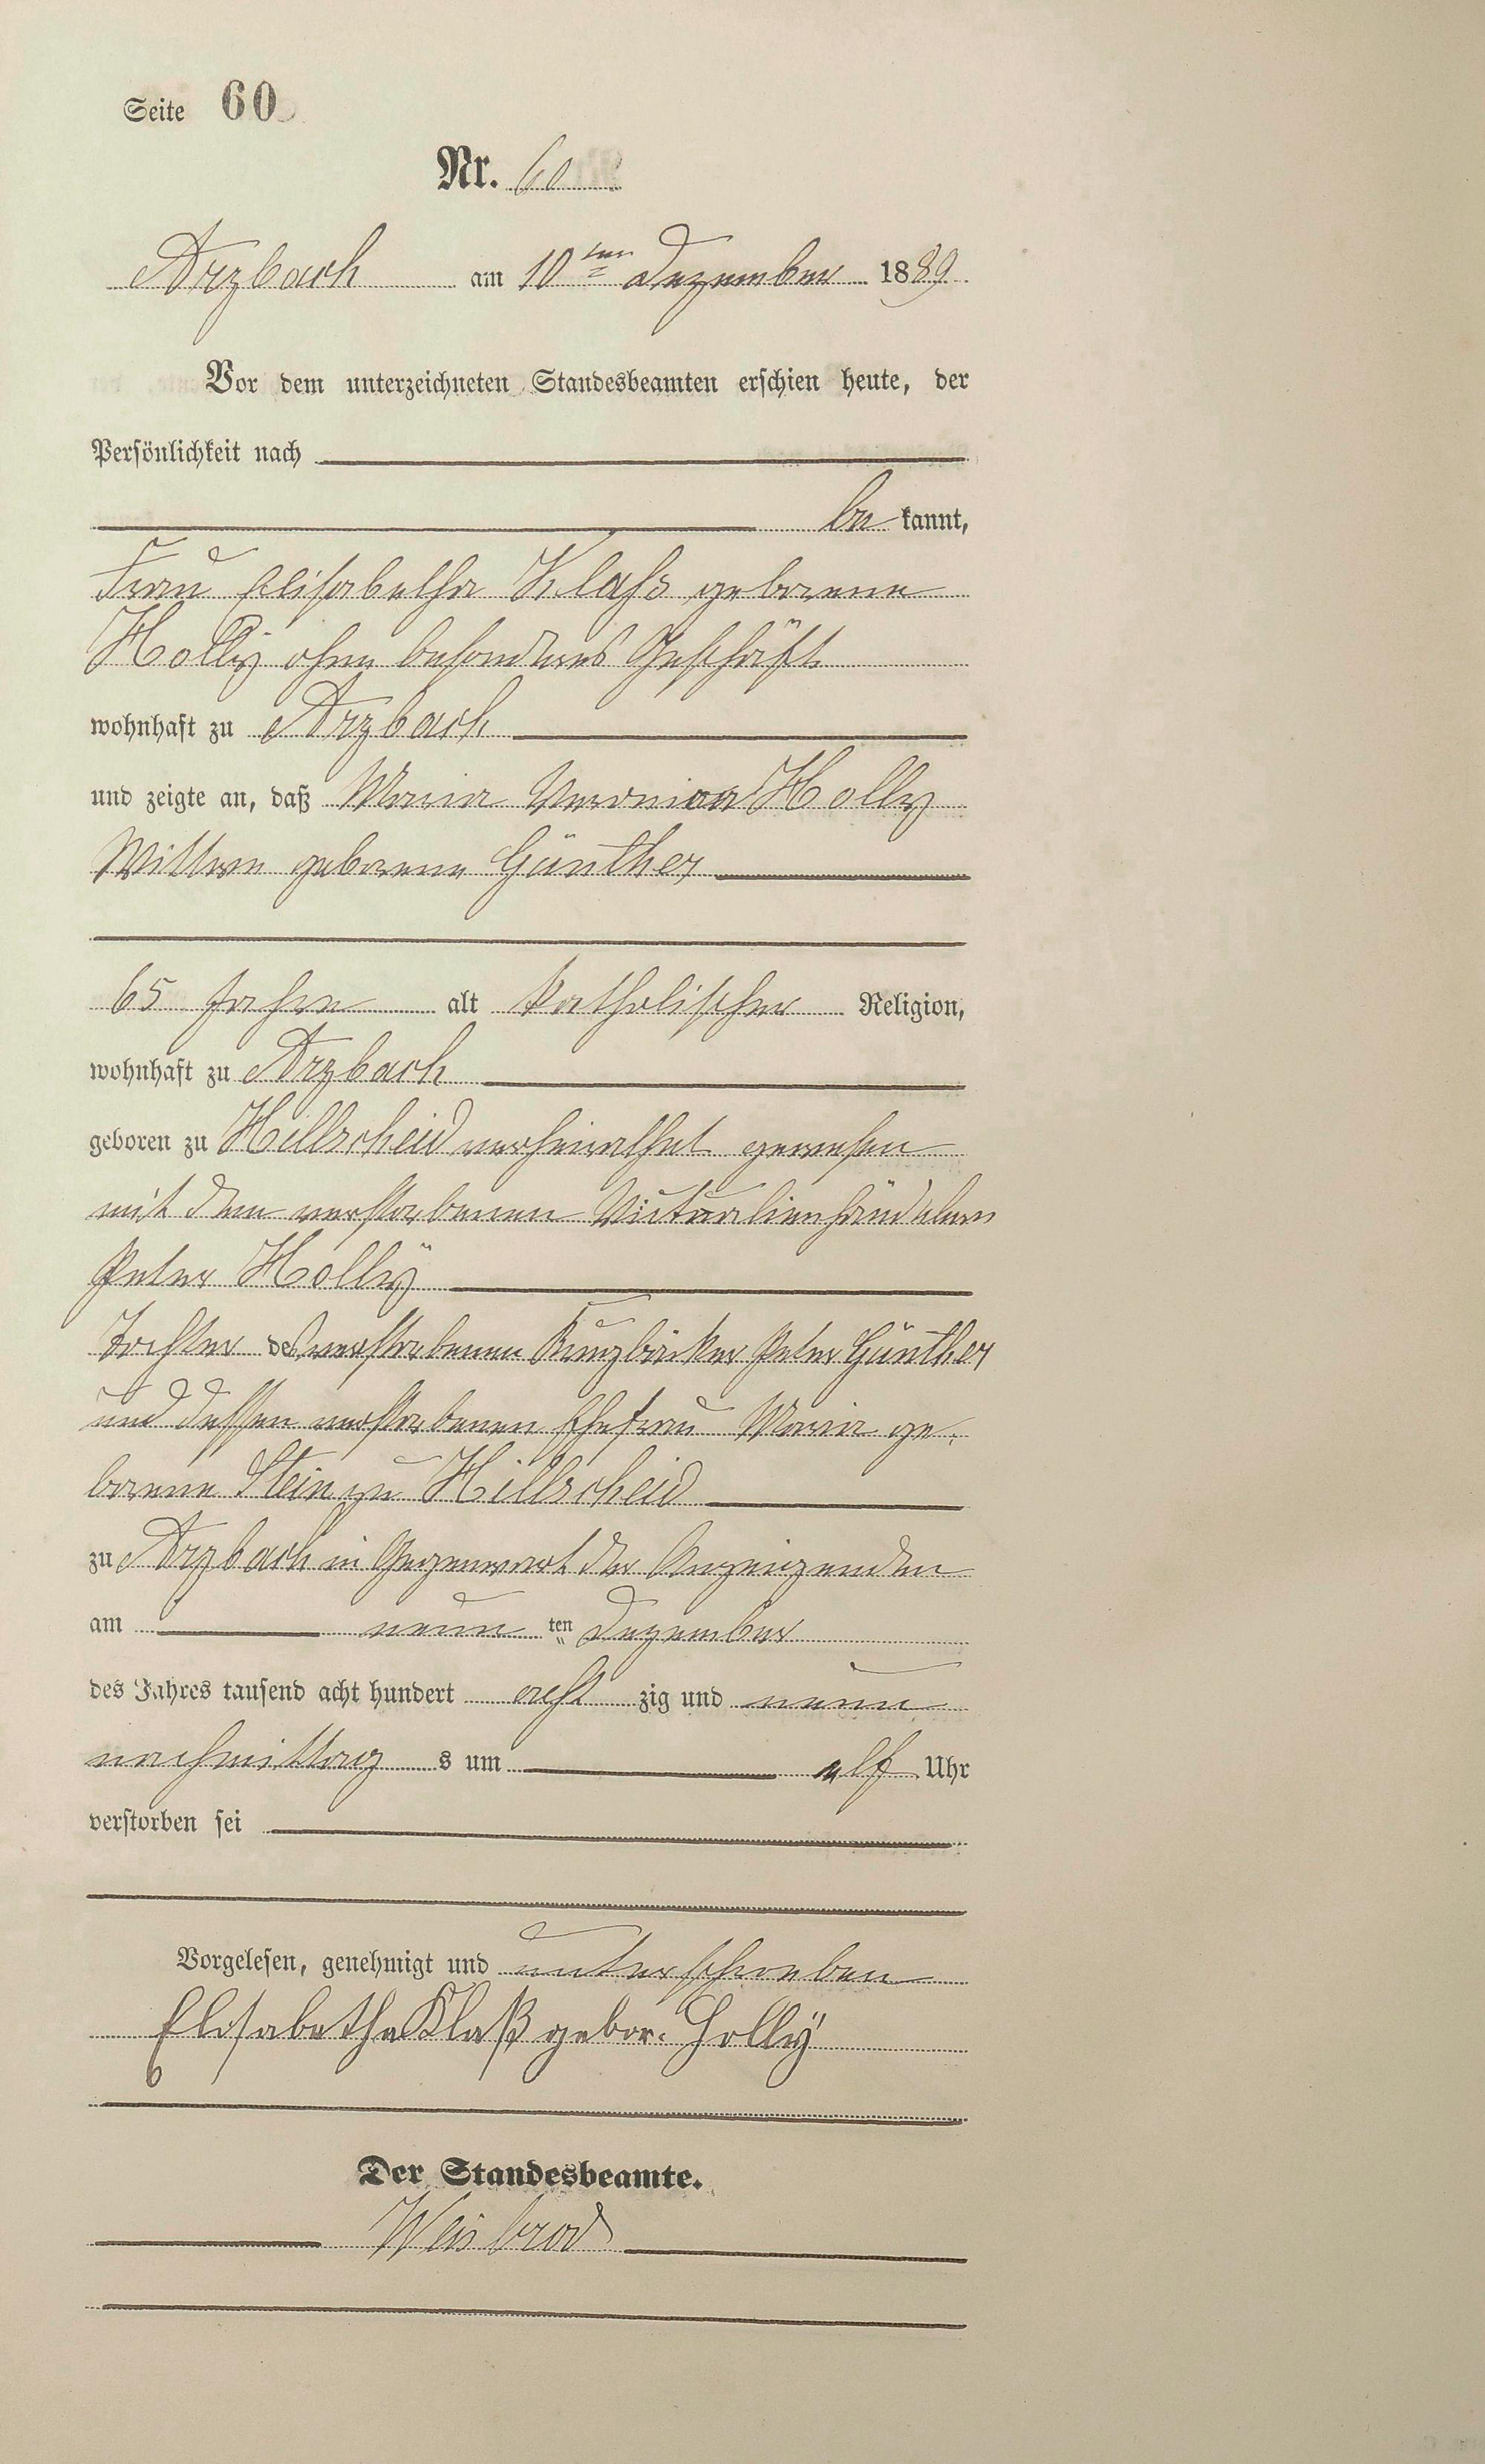 Seite 60
Nr. 60
Arzbach am 10ten Dezember 1889
Vor dem unterzeichneten Standesbeamten erschien heute, der
Persönlichkeit nach
be kannt,
Frau Elisabetha Klaß geborene
Holly ohne besonderes Geschäft
wohnhaft zu Arzbach
und zeigte an, daß Maria Veronica Holly
Wittwe geborene Günther
65 Jahre alt katholischer Religion,
wohnhaft zu Arzbach
geboren zu Hillscheid verheirathet gewesen
mit dem verstorbenen Victualienhändlers
Peter Hollÿ
Tochter des verstorbenen Peter Günther
und dessen verstorbenen Ehefrau Maria ge-
borene Stein zu Hillscheid
zu Arzbach in Gegenwart der Anzeigenden
am neun ten Dezember
des Jahres tausend acht hundert acht zig und neun
nachmittag s um elf Uhr
verstorben sei
Vorgelesen, genehmigt und unterschrieben
Elisabetha Klaß gebor. Hollÿ
Der Standesbeamte.
Weisbrod